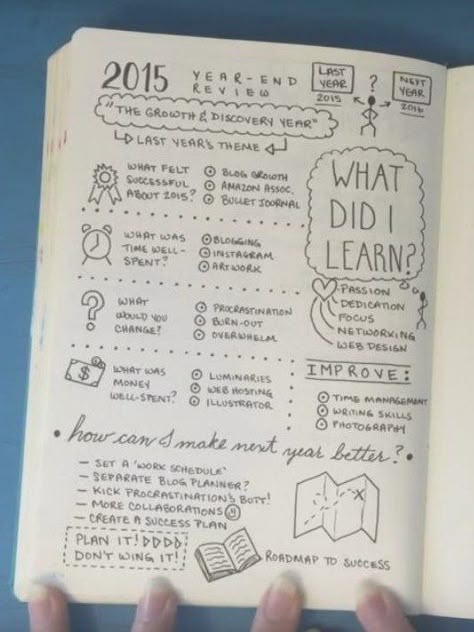 2015 YEAR-END
REVIEW
LAST
YEAR
2015
?
NEXT
YEAR
2016
"THE GROWTH & DISCOVERY YEAR"
LAST YEAR'S THEME
WHAT FELT
SUCCESSFUL
ABOUT 2015?
BLOG GROWTH
AMAZON ASSOC.
BULLET JOURNAL
WHAT WAS
TIME WELL-
SPENT?
BLOGGING
INSTAGRAM
ARTWORK
?
WHAT
WOULD YOU
CHANGE?
PROCRASTINATION
BURN-OUT
OVERWHELM
$
WHAT WAS
MONEY
WELL-SPENT?
LUMINARIES
WEB HOSTING
ILLUSTRATOR
WHAT
DID I
LEARN?
PASSION
DEDICATION
FOCUS
NETWORKING
WEB DESIGN
IMPROVE:
TIME MANAGEMENT
WRITING SKILLS
PHOTOGRAPHY
• how can I make next year better? •
- SET A 'WORK SCHEDULE'
- SEPARATE BLOG PLANNER?
- KICK PROCRASTINATION'S BUTT!
- MORE COLLABORATIONS
- CREATE A SUCCESS PLAN
PLAN IT!
DON'T WING IT!
X
ROADMAP TO SUCCESS